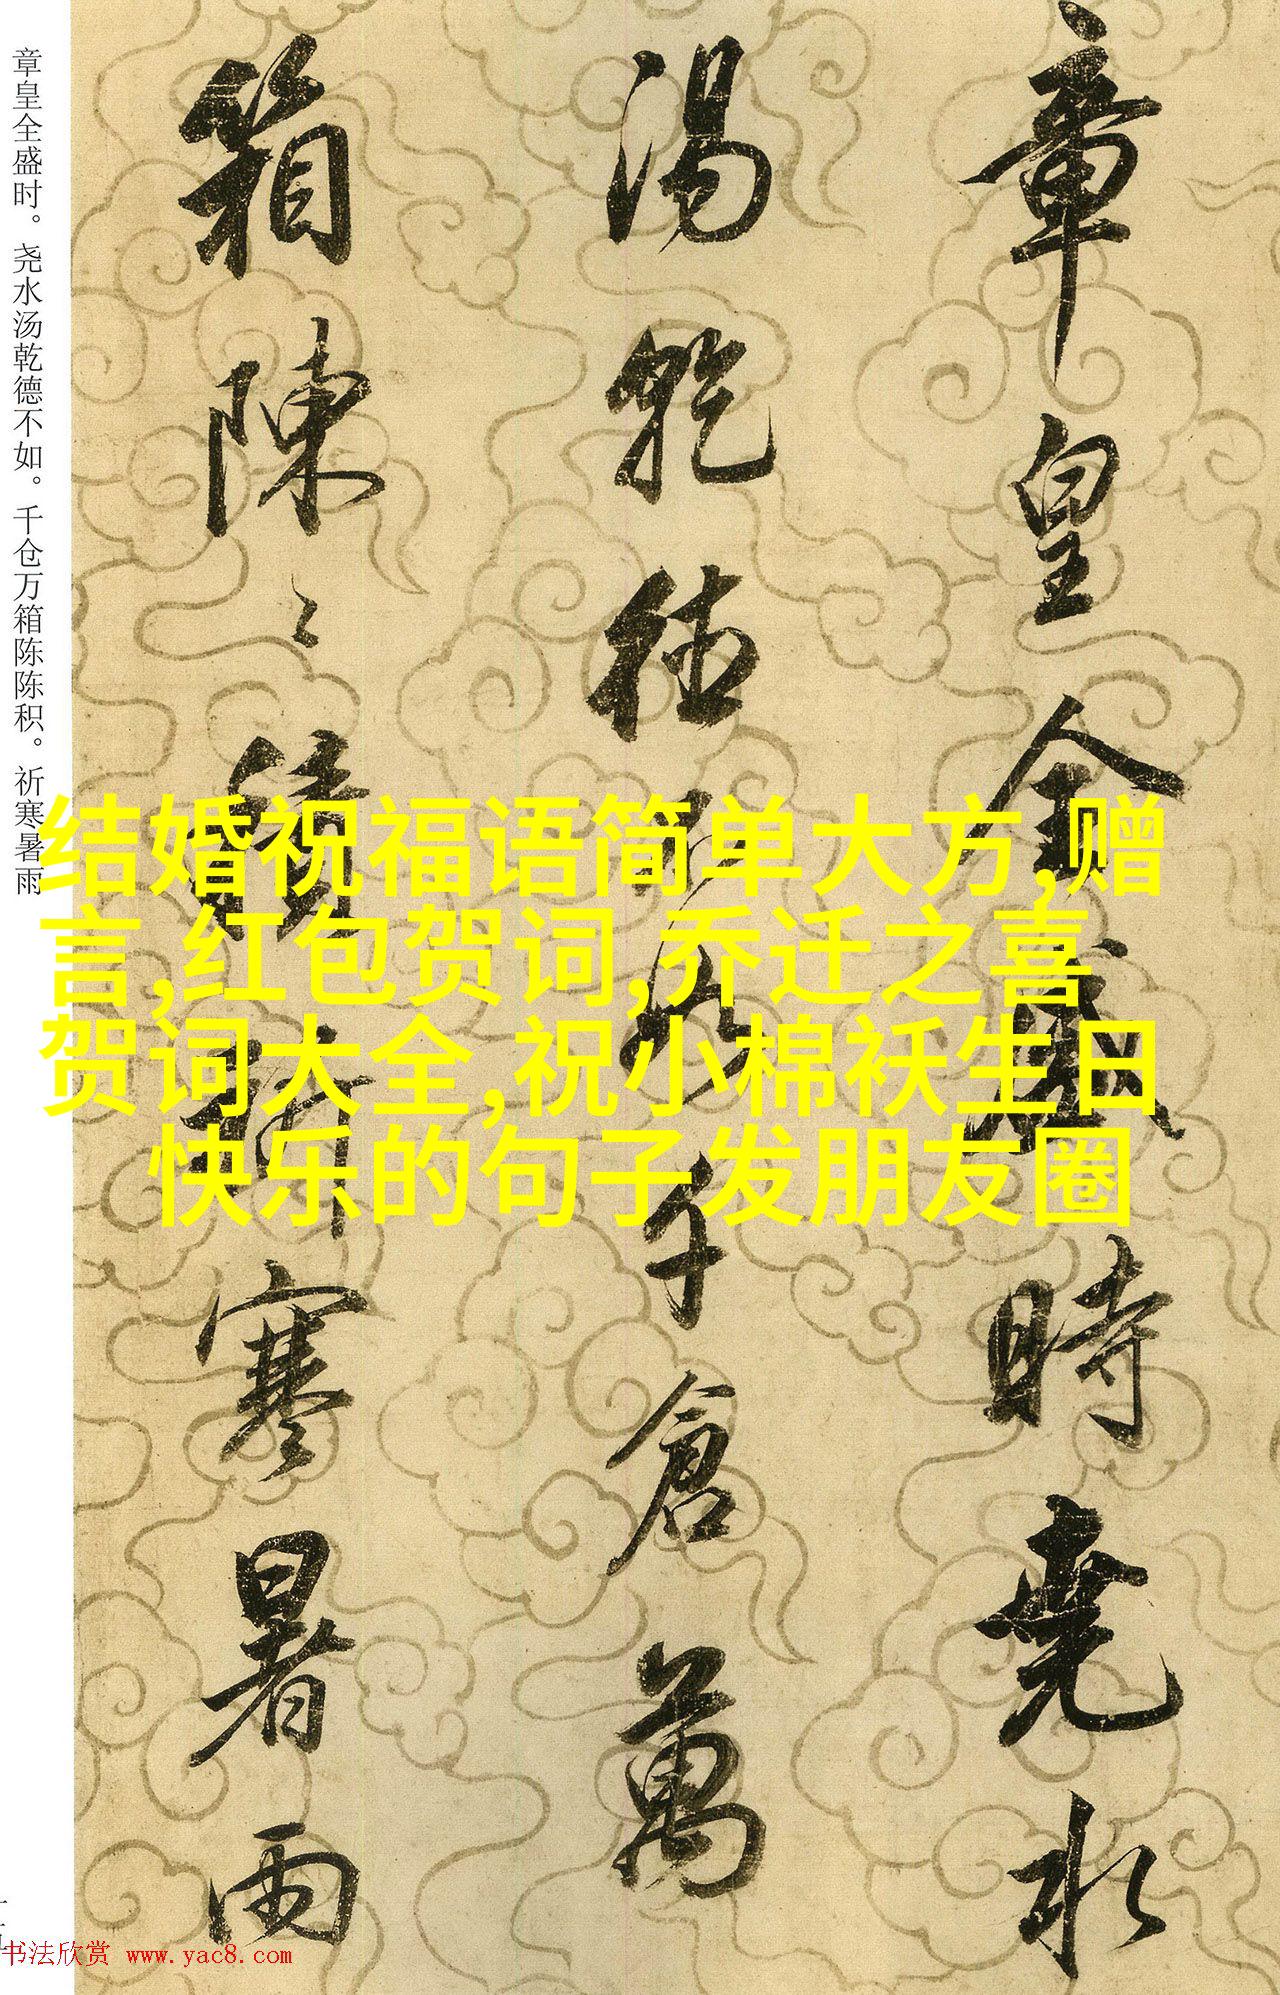 章皇全盛時堯水
湯乾德不如千倉萬
箱陳〻積祈寒暑雨
章皇全盛时。尧水汤乾德不如。千仓万箱陈陈积。祈寒暑雨
结婚祝福语简单大方,赠
言,红包贺词,乔迁之喜
贺词大全,祝小棉袄生日
快乐的句子发朋友圈
书法欣赏 www.yac8.com